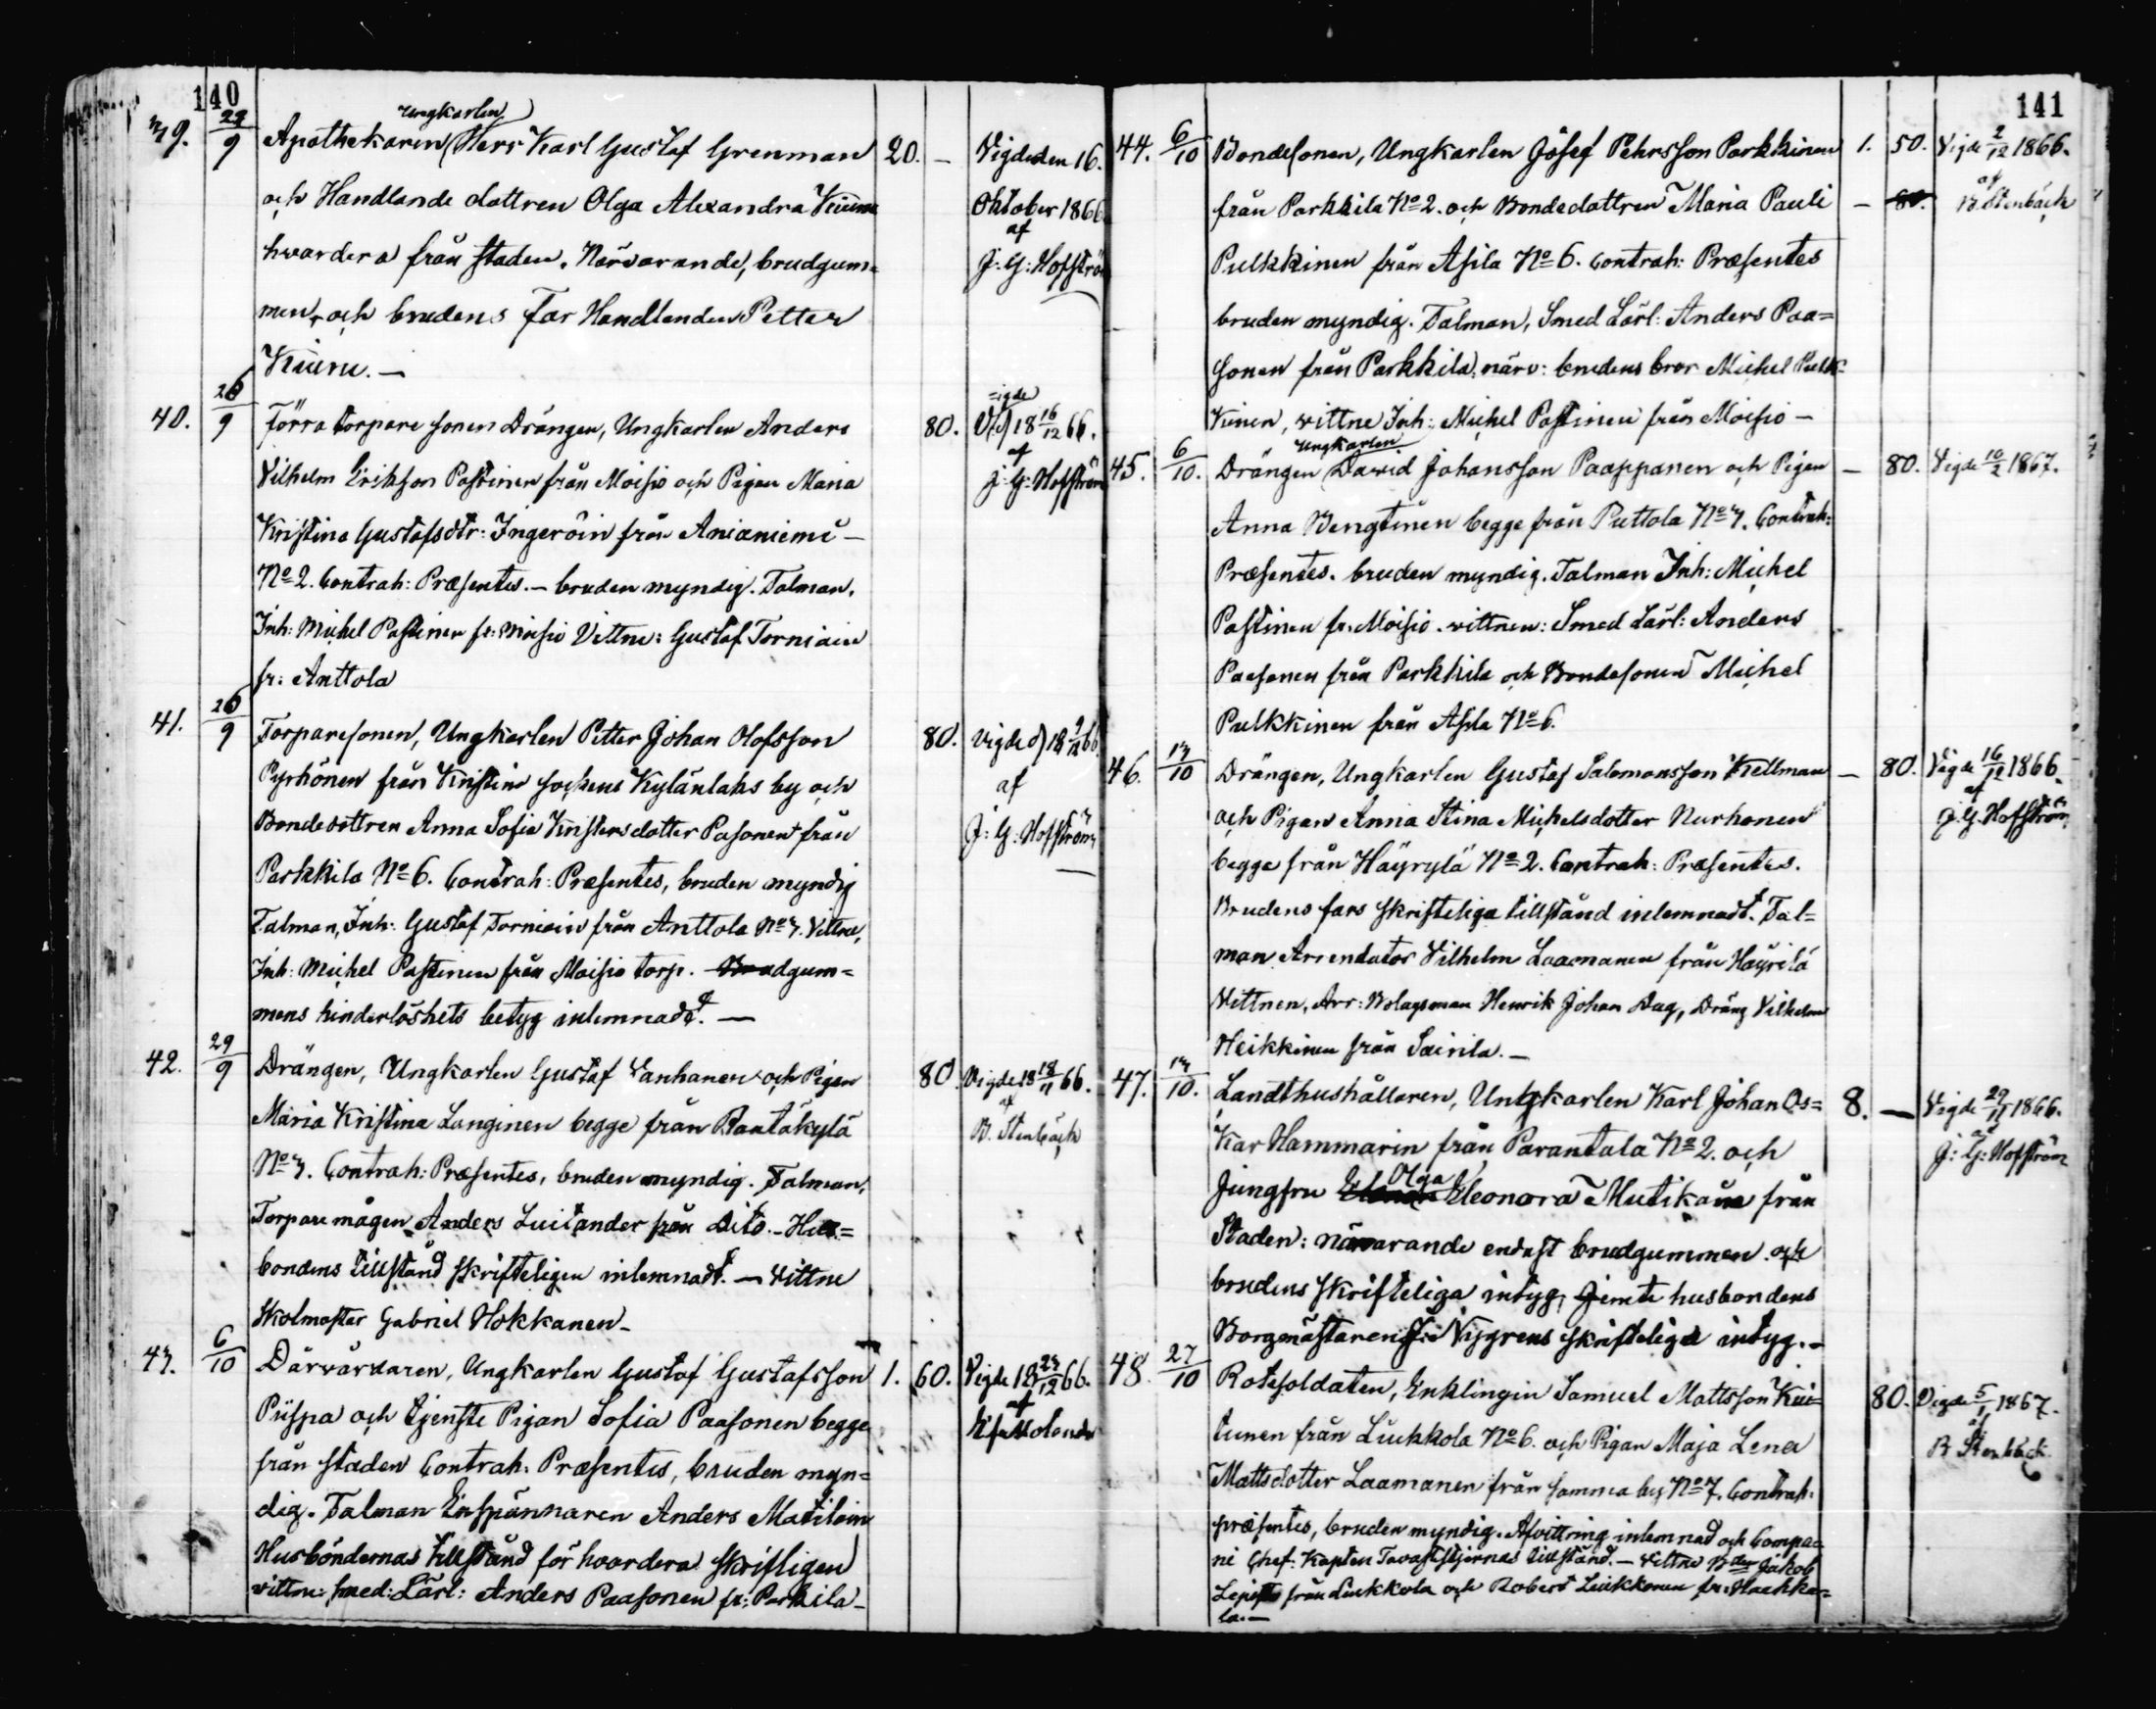 140
39. 29/9 Ungkarlen
Apothekaren Herr Karl Gustaf Grenman 20. – Vigde den 16.
och Handlande dottren Olga Alexandra Kiuru Oktober 1866
hvardera från staden. Närvarande, brudgum= af J. G. Hofström
men, och brudens far Handlanden Petter
Kiuru. —
40. 26/9 Förra torpare sonen Drängen, Ungkarlen Anders 80. Vigde d) 18 16/12 66.
Vilhelm Erikson Pastinen från Moisio och Pigan Maria af J. G. Hofström
Kristina Gustafsdtr: Ingeröin från Anianiemi –
No 2. Contrah: Præsentes. – bruden myndig. Talman,
Inh: Michel Pastinen fr: Moisio Vittne: Gustaf Torniain
fr: Anttola
41. 26/9 Torparesonen, Ungkarlen Petter Johan Olofsson 80. Vigde d) 18 9/12 66
Pyrhönen från Kristina sockens Kylänlaks by och af
Bondedottren Anna Sofia Kristersdotter Pasonen från J. G. Hofström
Parkkila No 6. Contrah: Præsentes, bruden myndig
Talman, Inh: Gustaf Torniain från Anttola No 3. Vittne,
Inh: Michel Pastinen från Moisio torp. Brudgum=
mens hinderlöshets betyg inlemnadt. —
42. 29/9 Drängen, Ungkarlen Gustaf Vanhanen och Pigan 80. Vigde 18 18/11 66.
Maria Kristina Langinen begge från Rantakylä af B. Stenbäck
No 3. Contrah: Præsentes, bruden myndig. Talman,
Torpare mågen Anders Luitander från Dito. – Hus=
bondens tillstånd skrifteligen inlemnadt. — Vittne
Skolmaster Gabriel Hokkanen –
43. 6/10 Dårvårdaren, Ungkarlen Gustaf Gustafsson 1. 60. Vigde 18 23/12 66.
Piispa och tjenste Pigan Sofia Paasonen begge af Molander
från staden Contrah. Præsentes, bruden myn=
dig. Talman Enspännaren Anders Matilain
Husböndernas tillstånd för hvardera skriftligen
vittne: smed: Lärl: Anders Paasonen fr: Parkila –
141
44. 6/10 Bondesonen, Ungkarlen Josef Pehrsson Parkkinen 1. 50. Vigde 2/12 1866.
från Parkkila No 2. och Bondedottren Maria Pauli – 80. af B. Stenbäck
Pulkkinen från Asila No 6. Contrah: Præsentes
bruden myndig. Talman, Smed Lärl: Anders Paa=
sonen från Parkkila, närv: brudens bror Michel Pulk=
kinen, vittne Inh: Michel Pastinen från Moisio –
45. 6/10. Ungkarlen
Drängen David Johansson Paappanen och Pigan – 80. Vigde 10/2 1867.
Anna Bengtinen begge från Puttola No 3. Contrah:
Præsentes. bruden myndig. Talman Inh: Michel
Pastinen fr. Moisio. vittnen: Smed Lärl: Anders
Paasonen från Parkkila och Bondesonen Michel
Pulkkinen från Asila No 6.
46. 13/10 Drängen, Ungkarlen Gustaf Salomonsson Kellman – 80. Vigde 16/12 1866.
och Pigan Anna Stina Michelsdotter Nurhonen af J. G. Hofström
begge från Häyrylä No 2. Contrah: Præsentes.
Brudens fars skrifteliga tillstånd inlemnadt. Tal=
man Arrendator Vilhelm Laamanen från Häyrilä
Vittnen, Arr: Bolagsman Henrik Johan Dag, Dräng Vilhelm
Heikkinen från Sairila. –
47. 13/10. Landthushållaren, Ungkarlen Karl Johan Os= 8. — Vigde 29/11 1866.
kar Hammarin från Parantala No 2. och af J. G. Hofström
Jungfru Olga Eleonora Mutikain från
Staden: närvarande endast brudgummen och
brudens skrifteliga intyg, Jemte husbondens
Borgmästaren Nygrens skrifteliga intyg. –
48. 27/10 Rotesoldaten, Enklingin Samuel Mattsson Kui= 80. Vigde 5/1 1867.
tunen från Liukkola No 6. och Pigan Maja Lena af B Stenbäck
Mattsdotter Laamanen från samma by No 7. Contrah.
præsentes, bruden myndig. Afvittring inlemnad och Compa=
ni Chef: Kapten Tavaststjernas tillstånd. – vittne Bde Jakob
från Liukkola och Robert Liukkonen fr: Haukka=
la. –